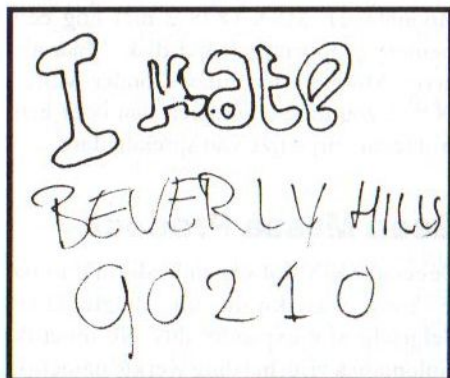 I Hate
BEVERLY HILLS
90210